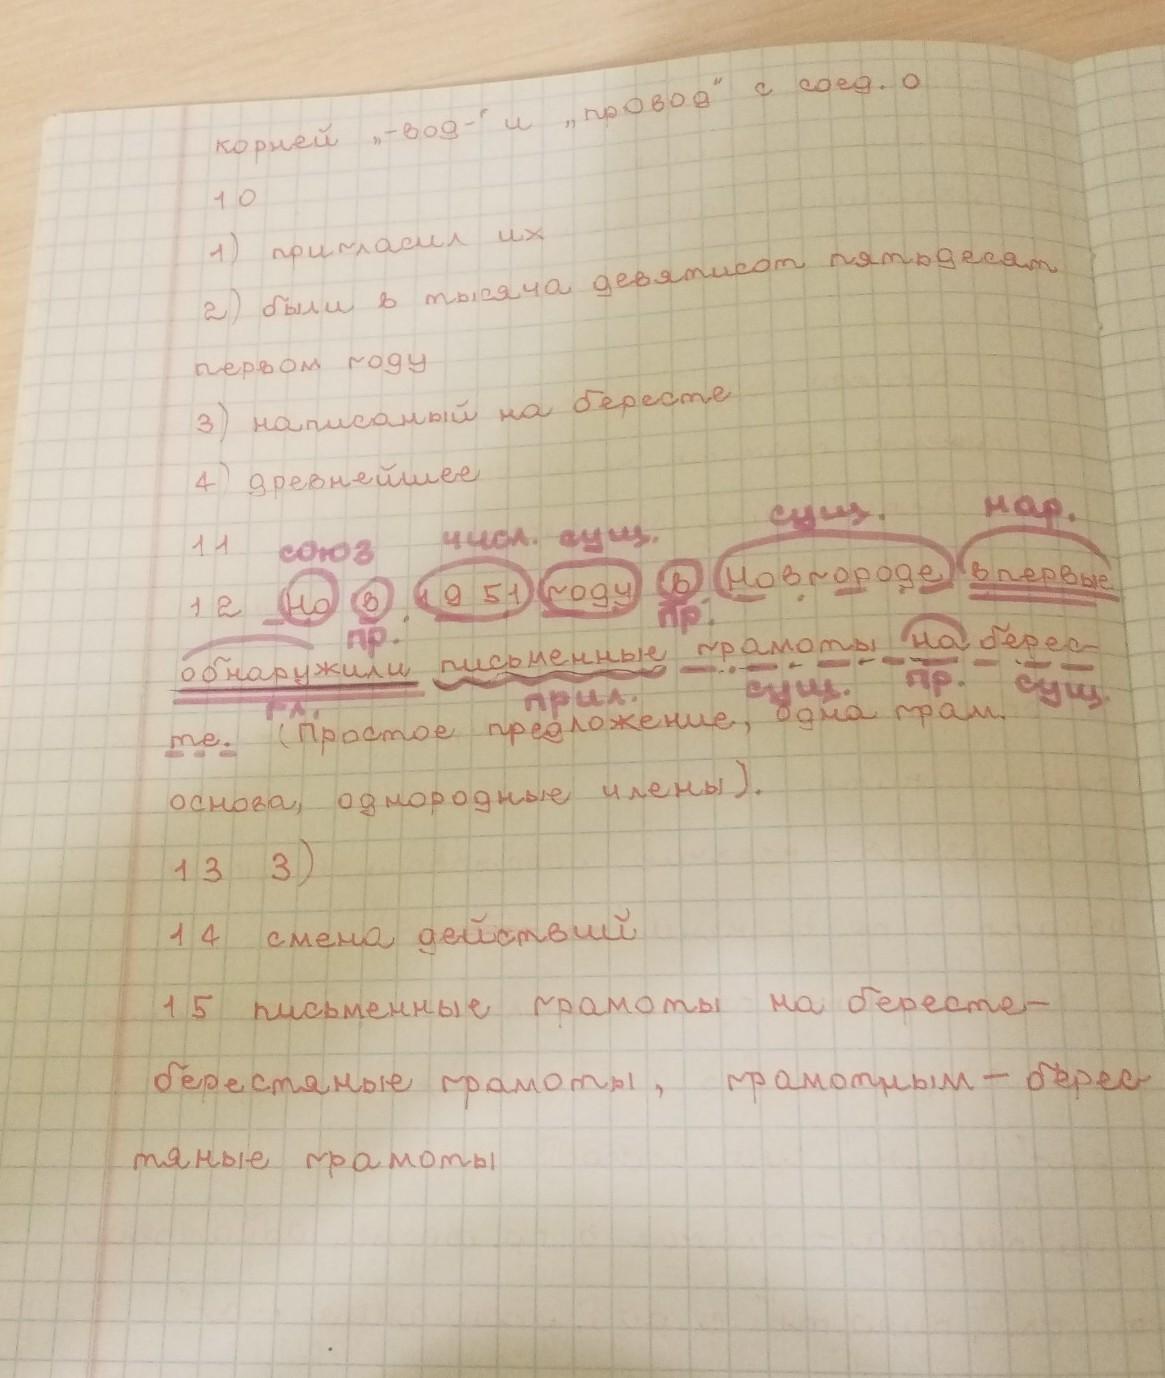 корней „-вод-“ и „провод“ с соед. о
10
1) пригласил их
2) были в тысяча девятисот пятьдесят
первом году
3) написаный на бересте
4) древнейшее
11 союз числ. сущ. сущ. нар.
12 Но в 1951 году в Новгороде впервые
пр. пр.
обнаружили письменные грамоты на берес-
гл. прил. сущ. пр. сущ.
те. (Простое предложение, одна грам.
основа, однородные члены).
13 3)
14 смена действий
15 письменные грамоты на бересте-
берестяные грамоты, грамотным - берес
тяные грамоты